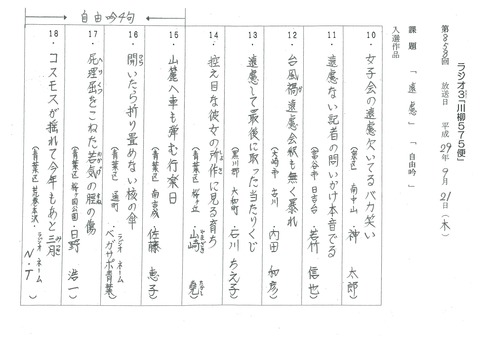 ラジオ3「川柳575便」
第353回　放送日　平成29年9月21日（木）
課題　「遠慮」　「自由吟」
入選作品
10　女子会の遠慮欠いてるバカ笑い
（泉区　南中山　・神　太郎）
11　遠慮ない記者の問いかけ本音でる
（富谷市　日吉台　・若竹　信也）
12　台風禍遠慮会釈も無く暴れ
（大崎市　古川　・内田　和彦）
13　遠慮して最後に取った当たりくじ
（黒川郡　大和町　・石川　ちえ子）
14　控え目な彼女の所作に見る育ち
（青葉区　桜ヶ丘　・山崎　）
自由吟4句
15　山麓へ車も弾む行楽日
（青葉区　南吉成　佐藤　恵子）
16　開いたら折り畳めない核の傘
（青葉区　通町　・ラジオネーム　ベガサポ青葉）
17　屁理屈をこねた若気の脛の傷
（青葉区　桜ヶ岡公園　・日野　浩一）
18　コスモスが揺れて今年もあと三月
（青葉区　荒巻本沢　・ラジオネーム　N・T）